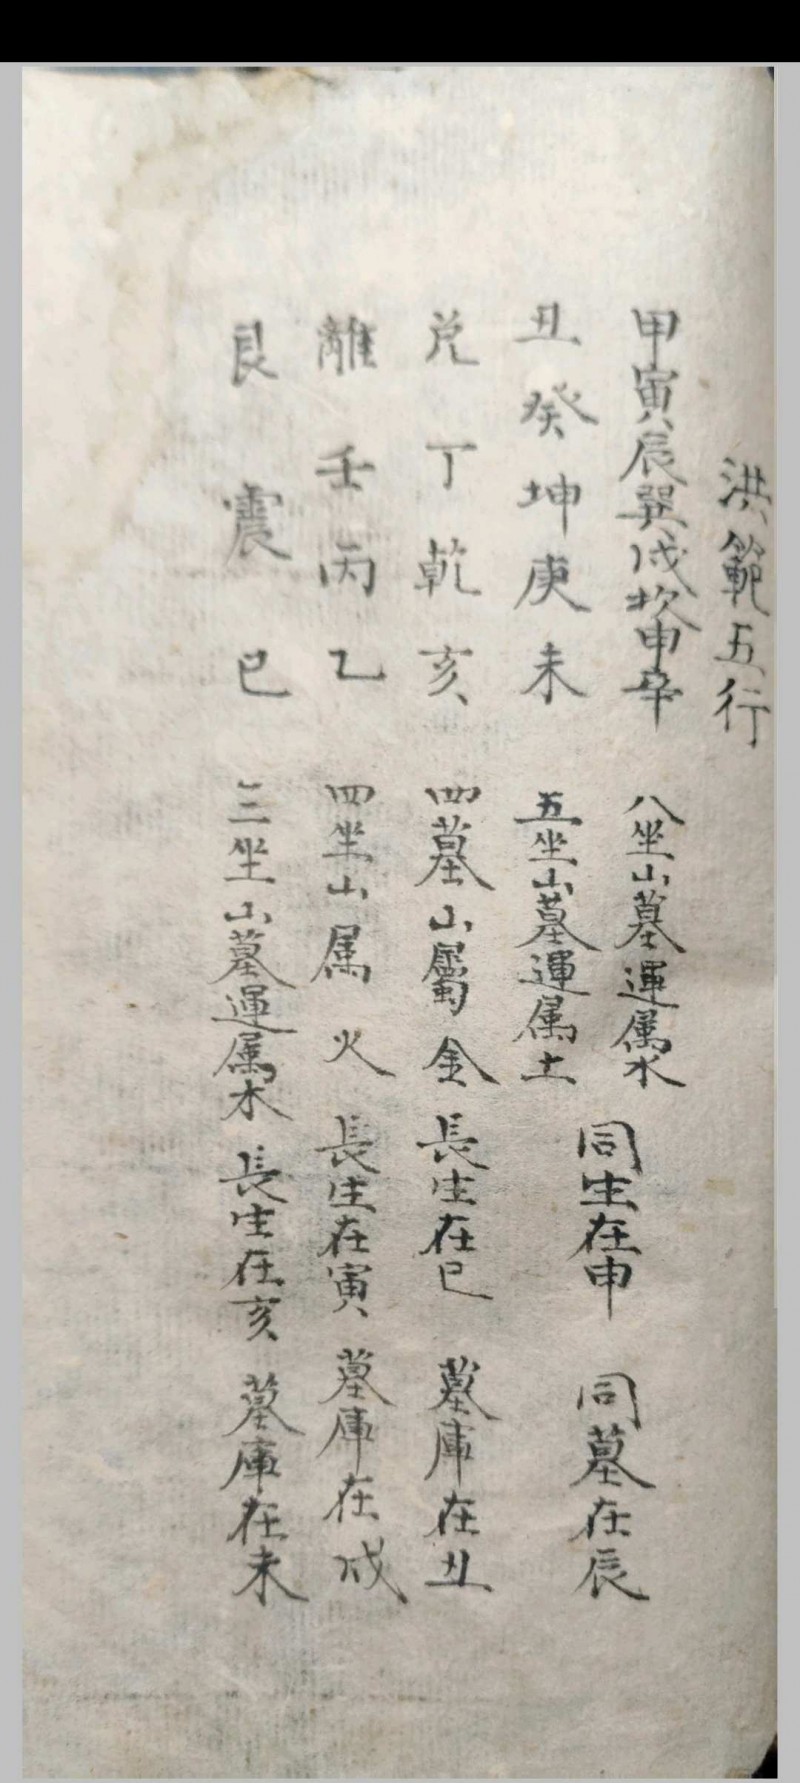 洪範五行
甲寅辰巽戌坎申辛 八坐山墓運属水
丑癸坤庚未 五坐山墓運属土
同生在申 同墓在辰
兌丁乾亥 四墓山屬金 長生在巳 墓庫在丑
離壬丙乙 四坐山属火 長生在寅 墓庫在戌
艮震巳 三坐山墓運属木 長生在亥 墓庫在未